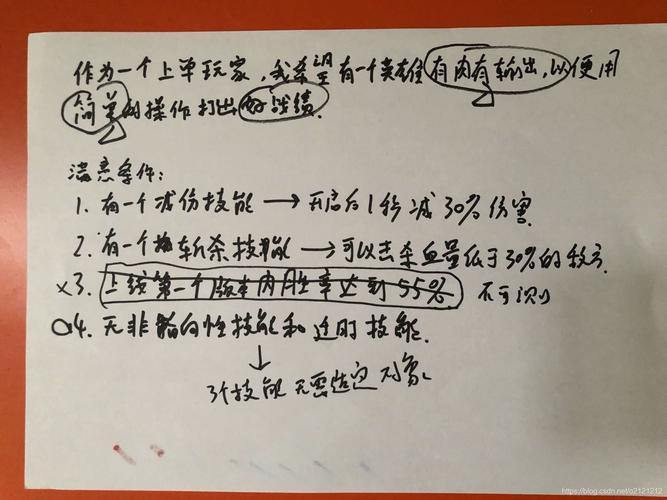 作为一个上单玩家，我希望有一个英雄有肉有输出，以便用
简单的操作打出好战绩.
满意条件:
1. 有一个减伤技能 → 开启后1秒减30%伤害
2. 有一个斩杀技能 → 可以击杀血量低于30%的敌方.
x3. 上线第一个版本内胜率达到55% 不可测
4. 无非指向性技能和延时技能.
↓
3个技能 无需 对象
https://blog.csdn.net/o2121212